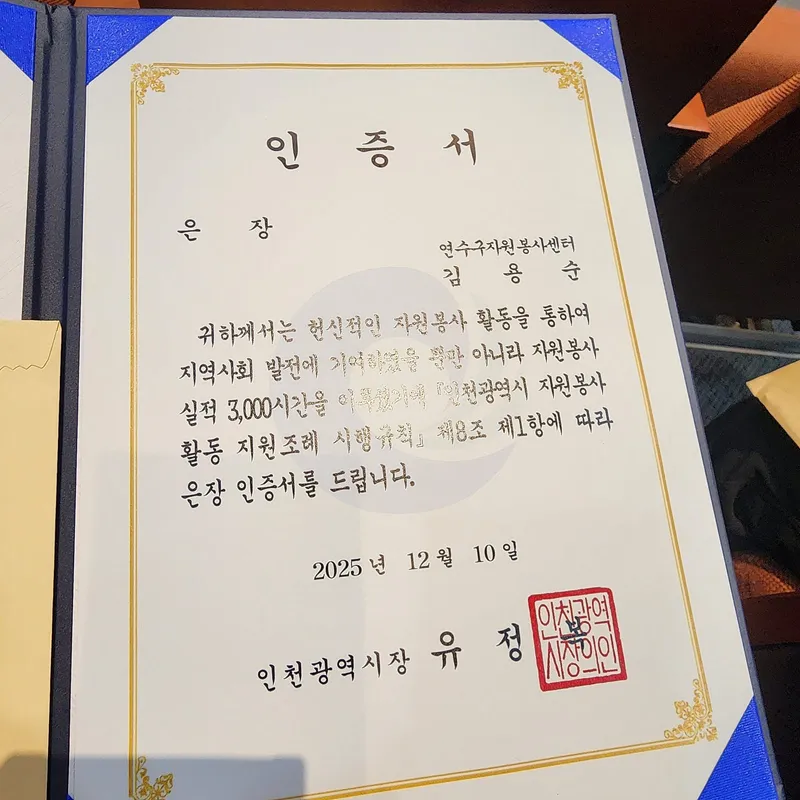 인증서
은장
연수구자원봉사센터
김용순
귀하께서는 헌신적인 자원봉사 활동을 통하여
지역사회 발전에 기여하였을 뿐만 아니라 자원봉사
실적 3,000시간을 이룩했기에 「인천광역시 자원봉사
활동 지원조례 시행규칙」 제8조 제1항에 따라
은장 인증서를 드립니다.
2025년 12월 10일
인천광역시장 유정복
인천광역
시장의인